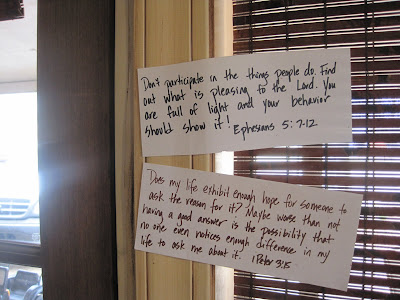 Don't participate in the things people do. Find
out what is pleasing to the Lord. You
are full of light and your behavior
should show it!
Ephesians 5:7-12
Does my life exhibit enough hope for someone to
ask the reason for it? Maybe worse than not
having a good answer is the possibility that
no one even notices enough difference in my
life to ask me about it. 1 Peter 3:15